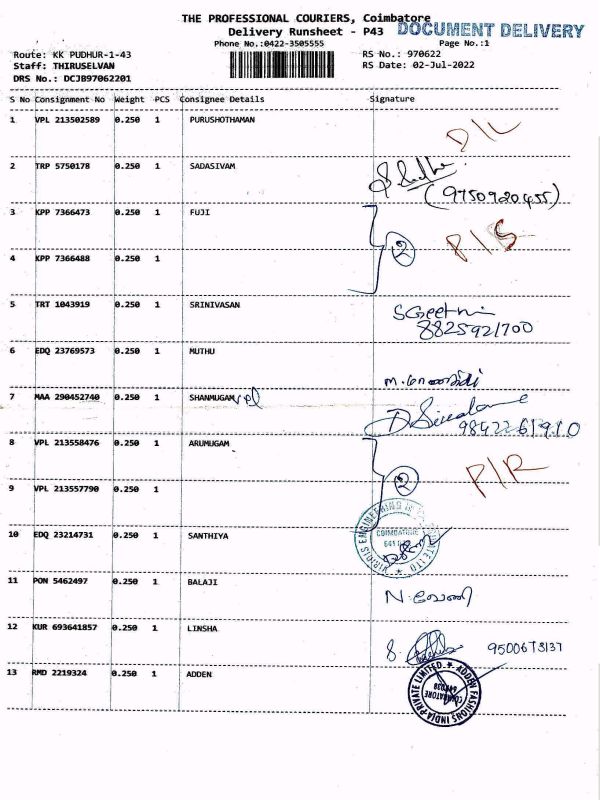 THE PROFESSIONAL COURIERS, Coimbatore
DOCUMENT DELIVERY
Delivery Runsheet - P43
Phone No.:0422-3505555
Page No.:1
Route: KK PUDHUR-1-43
RS No.: 970622
Staff: THIRUSELVAN
RS Date: 02-Jul-2022
DRS No.: DCJB97062201
S No Consignment No Weight PCS Consignee Details Signature
1 VPL 213502589 0.250 1 PURUSHOTHAMAN D/L
2 TRP 5750178 0.250 1 SADASIVAM
(9750920455)
3 KPP 7366473 0.250 1 FUJI
2
4 KPP 7366488 0.250 1
5 TRT 1043919 0.250 1 SRINIVASAN SGeetha
8825921700
6 EDQ 23769573 0.250 1 MUTHU
7 MAA 290452740 0.250 1 SHANMUGAM vel
9842261910
8 VPL 213558476 0.250 1 ARUMUGAM P/R
2
9 VPL 213557790 0.250 1
10 EDQ 23214731 0.250 1 SANTHIYA
COIMBATORE
11 PON 5462497 0.250 1 BALAJI
12 KUR 693641857 0.250 1 LINSHA
13 RMD 2219324 0.250 1 ADDEN
ADDEN FASHIONS INDIA PRIVATE LIMITED
COIMBATORE
641038